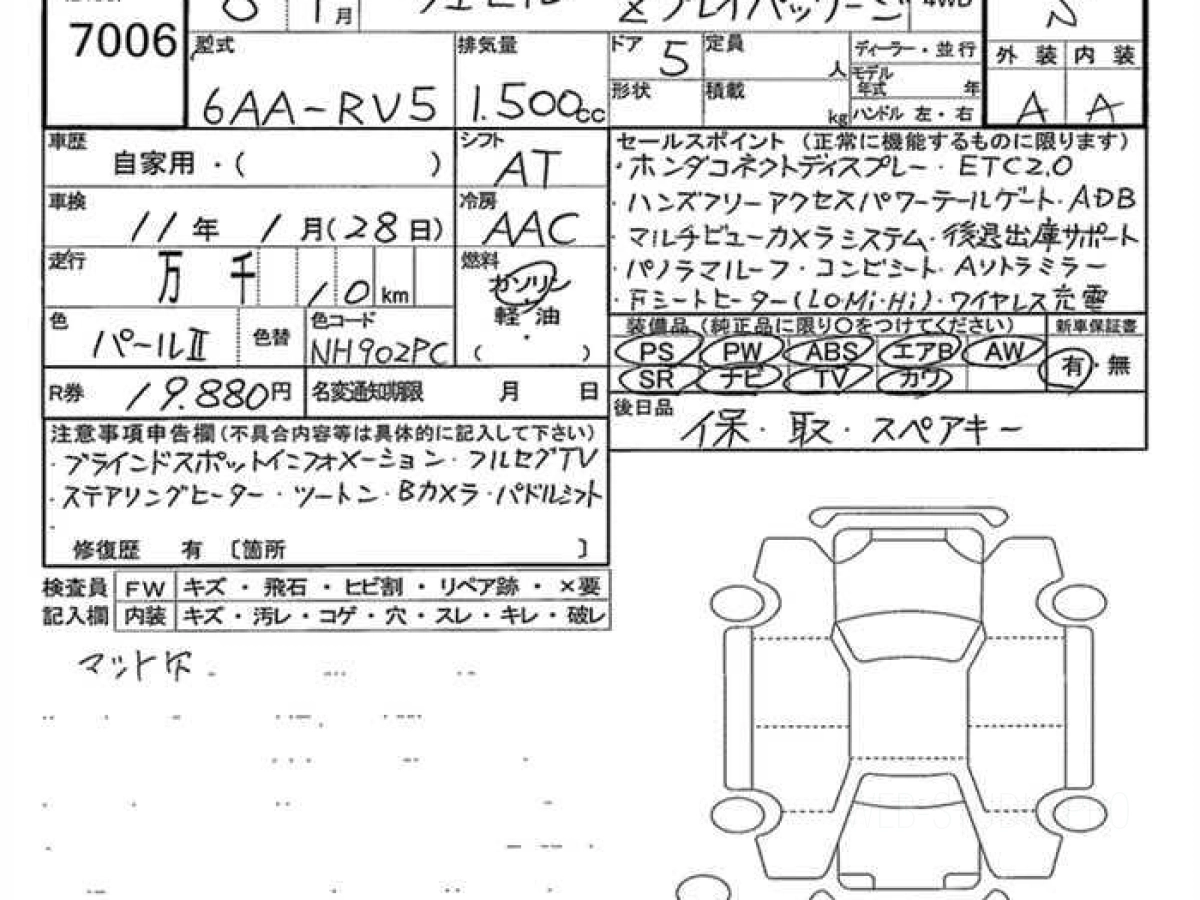 7006
8 1月 ヴェゼル Z プレイパッケージ 4WD S
型式 6AA-RV5
排気量 1.500cc
ドア 5 定員 人
形状 積載 kg
ディーラー・並行
モデル年式 年
ハンドル 左・右
外装 内装
A A
車歴 自家用・( )
シフト AT
車検 11年 1月(28日)
冷房 AAC
走行 万 千 10 km
燃料 ガソリン・軽・油 ( )
色 パールⅡ 色替
色コード NH902PC
R券 19.880円 名変通知期限 月 日
セールスポイント (正常に機能するものに限ります)
・ホンダコネクトディスプレー・ETC2.0
・ハンズフリーアクセスパワーテールゲート・ADB
・マルチビューカメラシステム・後退出庫サポート
・パノラマルーフ・コンビシート・Aリトラミラー
・Fシートヒーター(LO・Mi・Hi)・ワイヤレス充電
装備品 (純正品に限り〇をつけてください) 新車保証書
PS PW ABS エアB AW 有・無
SR ナビ TV カワ
後日品 保・取・スペアキー
注意事項申告欄(不具合内容等は具体的に記入して下さい)
・ブラインドスポットインフォメーション・フルセグTV
・ステアリングヒーター・ツートン・Bカメラ・パドルシフト
・
修復歴 有 〔箇所 〕
検査員 FW キズ・飛石・ヒビ割・リペア跡・×要
記入欄 内装 キズ・汚レ・コゲ・穴・スレ・キレ・破レ
マット欠